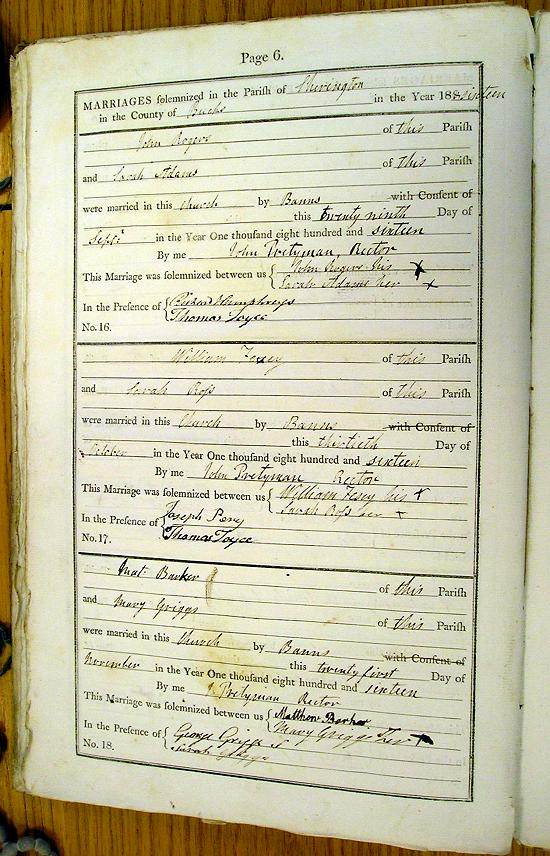 Page 6.
MARRIAGES solemnized in the Parish of Sherington
in the County of Bucks in the Year 18 sixteen
John Rogers of this Parish
and Sarah Adams of this Parish
were married in this Church by Banns with Consent of
this twenty ninth Day of
Septr in the Year One thousand eight hundred and sixteen
By me John Pretyman, Rector
This Marriage was solemnized between us John Rogers his X
Sarah Adams her X
In the Presence of Richard Humphreys
Thomas Joyce
No. 16.
William Fesey of this Parish
and Sarah Ross of this Parish
were married in this Church by Banns with Consent of
this thirtieth Day of
October in the Year One thousand eight hundred and sixteen
By me John Pretyman Rector
This Marriage was solemnized between us William Fesey his X
Sarah Ross her X
In the Presence of Joseph Perry
Thomas Joyce
No. 17.
Mat. Barker of this Parish
and Mary Griggs of this Parish
were married in this Church by Banns with Consent of
this twenty first Day of
November in the Year One thousand eight hundred and sixteen
By me J. Pretyman Rector
This Marriage was solemnized between us Matthew Barker
Mary Griggs her X
In the Presence of George Griggs
Sarah Griggs
No. 18.